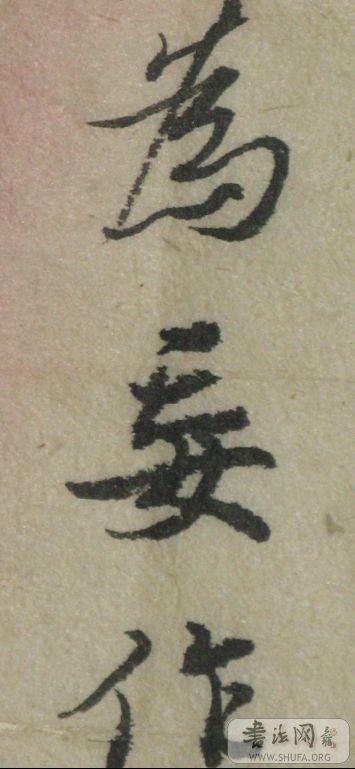 為妄作
書法网
WWW.SHUFA.ORG